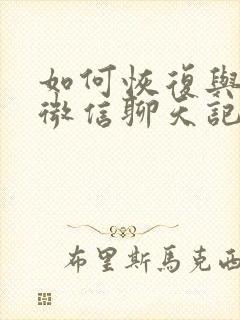 如何恢復與
微信聊天記
布里斯馬克西